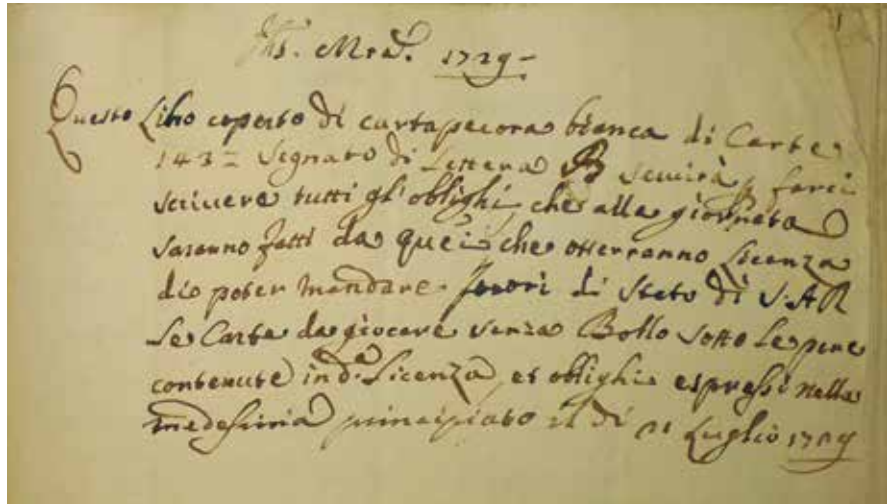 Jhs. Mra. 1729
Questo Libro coperto di cartapecora bianca di Carte
143 Segnato di Lettera B servirà p farci
scrivere tutti gl'oblighi, che alla giornata
saranno fatti da quei che otterranno Licenza
di poter mandare fuori di Stato di S.A.R
Le Carte da giocare senza Bollo sotto le pene
contenute in da. Licenza, et oblighi espressi nella
medesima principiato il dì Luglio 1729